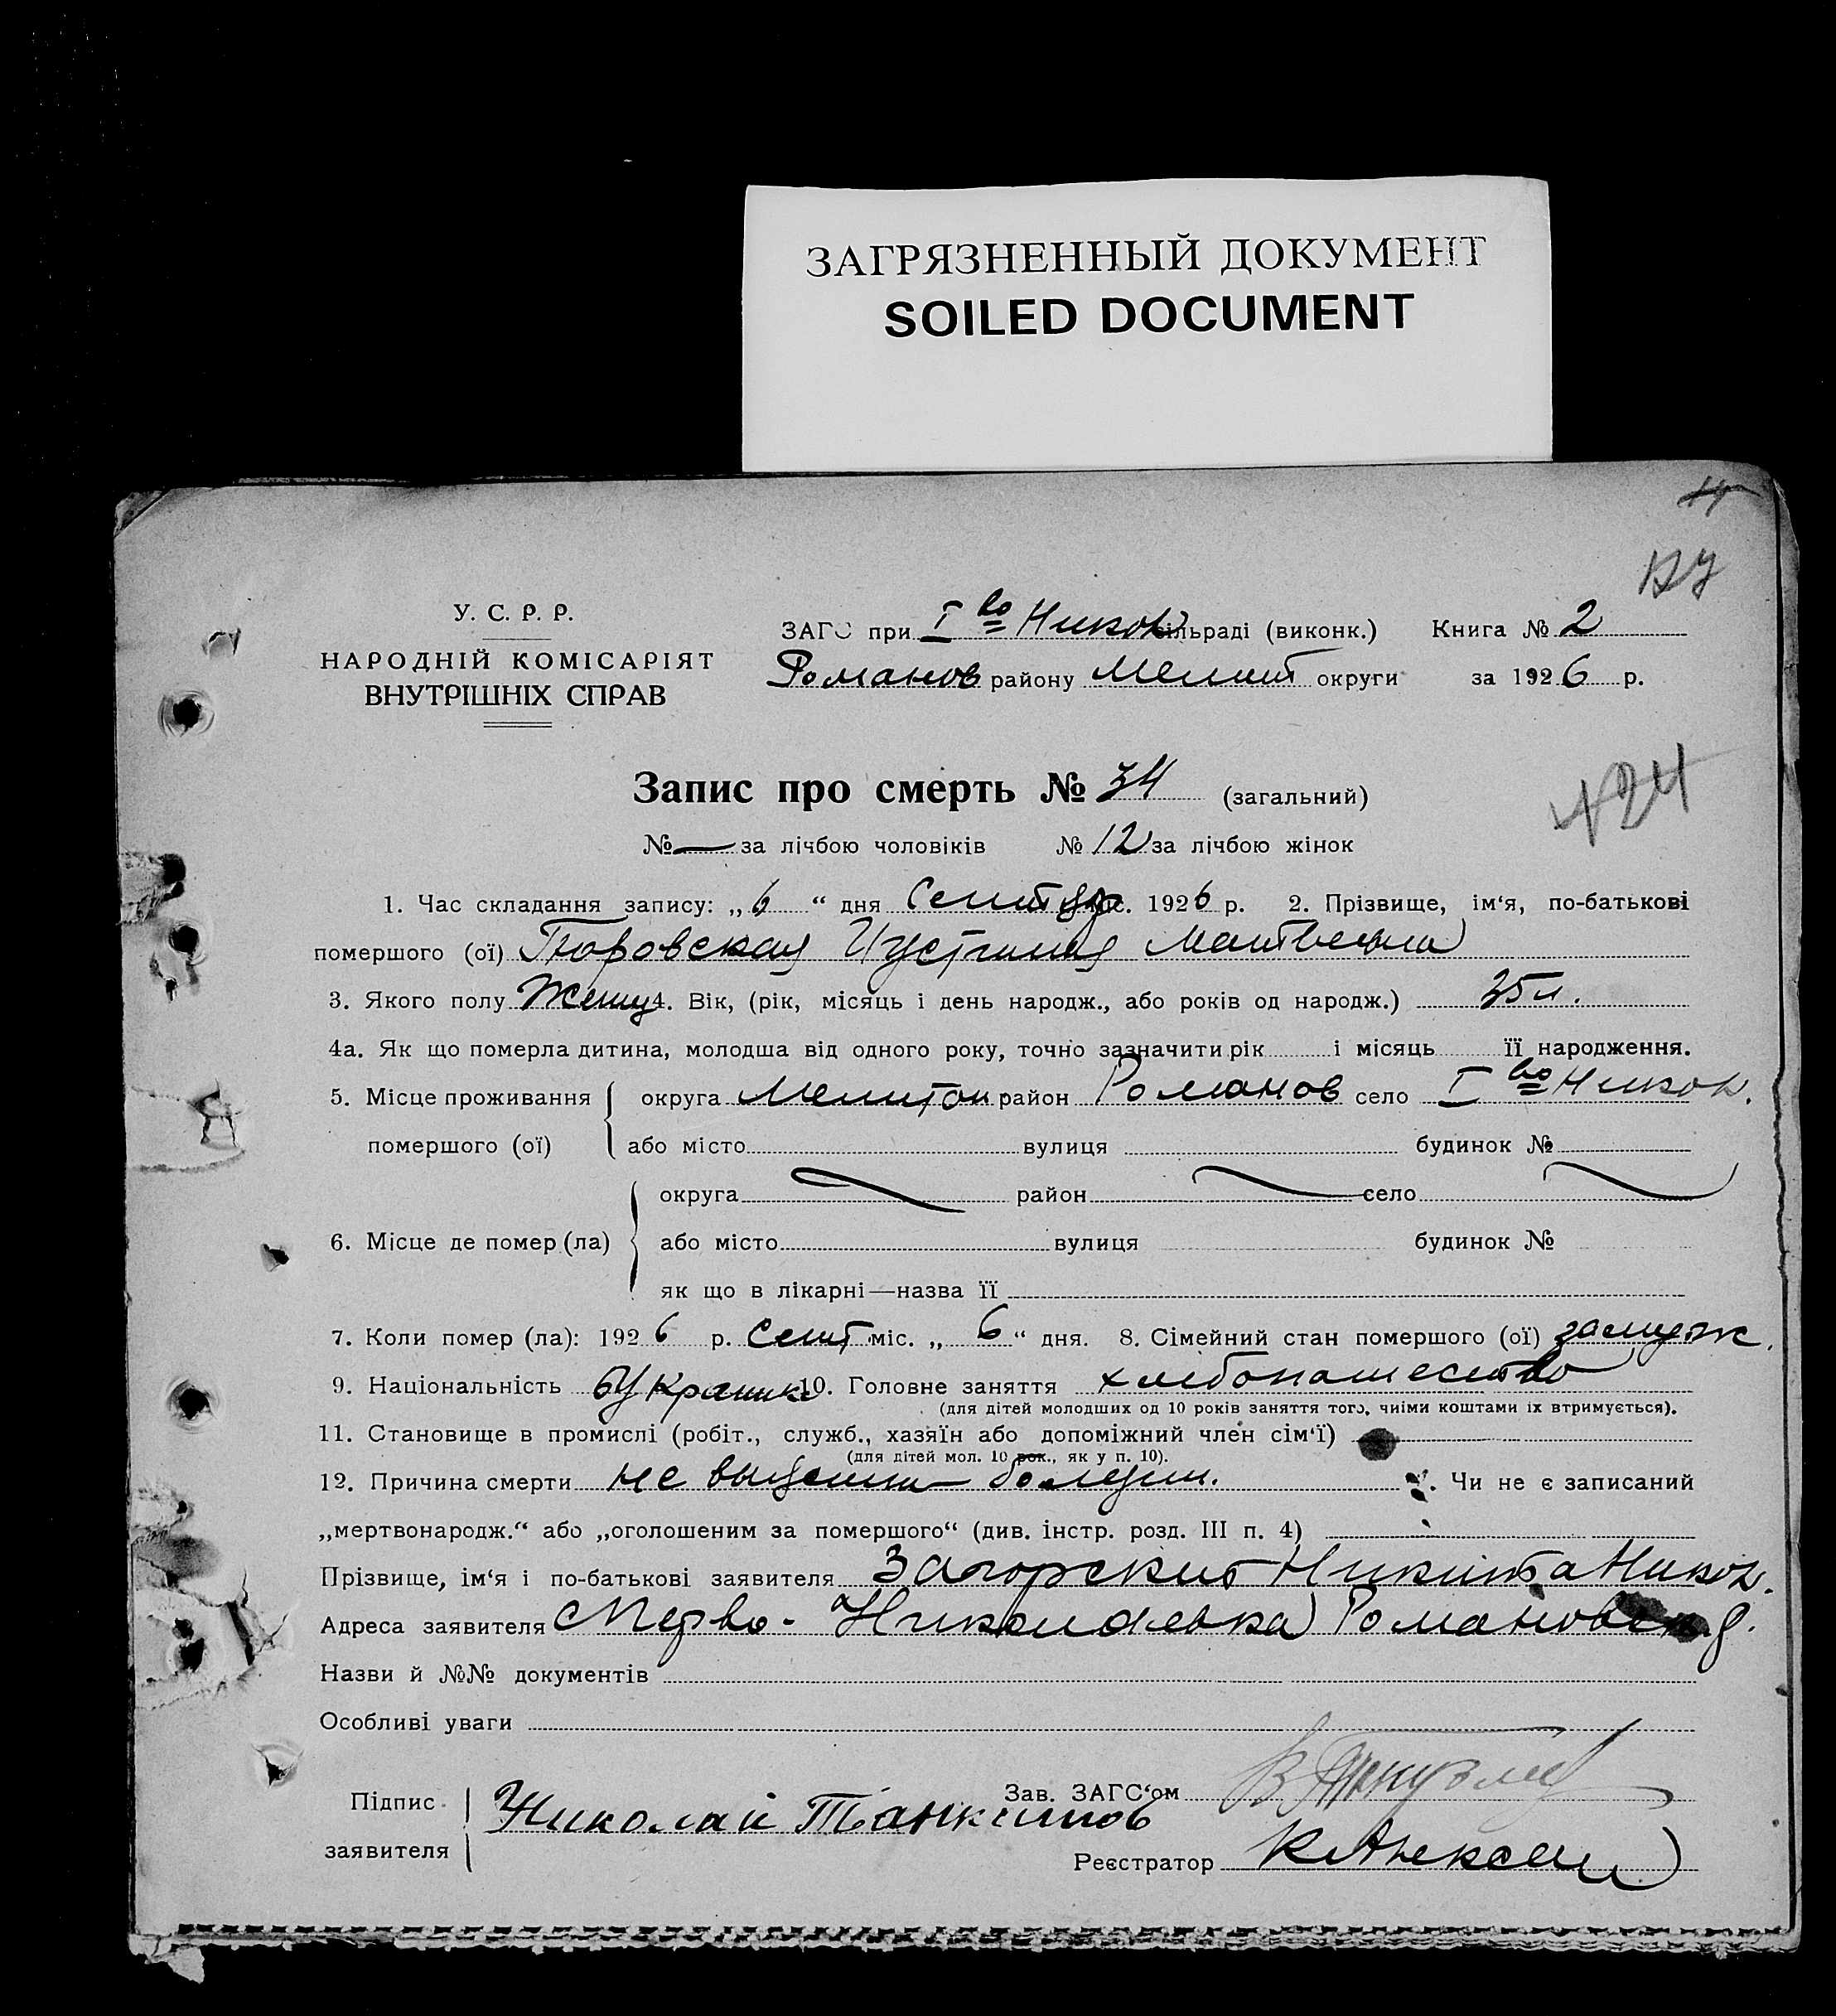 ЗАГРЯЗНЕННЫЙ ДОКУМЕНТ
SOILED DOCUMENT
У. С. Р. Р.
НАРОДНІЙ КОМІСАРІЯТ
ВНУТРІШНІХ СПРАВ
ЗАГС при I во Никол сільраді (виконк.) Книга № 2
Романов району Мелит округи за 1926 р.
Запис про смерть № 34 (загальний)
№ — за лічбою чоловіків № 12 за лічбою жінок
1. Час складання запису: „ 6 “ дня Сентяб міс. 1926 р. 2. Прізвище, ім‘я, по-батькові
помершого (ої) Иустиния Матвеевна
3. Якого полу Женщ 4. Вік, (рік, місяць і день народж., або років од народж.) 35 л.
4а. Як що померла дитина, молодша від одного року, точно зазначити рік і місяць її народження.
5. Місце проживання округа Мелитоп район Романов село I во Никол.
помершого (ої) або місто вулиця будинок №
округа район село
6. Місце де помер (ла) або місто вулиця будинок №
як що в лікарні—назва її
7. Коли помер (ла): 1926 р. Сент міс. „ 6 “ дня. 8. Сімейний стан помершого (ої) замуж.
9. Національність Украинк 10. Головне заняття хлебопашество
(для дітей молодших од 10 років заняття того, чиїми коштами їх втримується).
11. Становище в промислі (робіт., служб., хазяїн або допоміжний член сім‘ї)
(для дітей мол. 10 рок., як у п. 10).
12. Причина смерти не болезни. Чи не є записаний
„мертвонародж.“ або „оголошеним за помершого“ (див. інстр. розд. III п. 4)
Прізвище, ім‘я і по-батькові заявителя Загорский Никита Никол.
Адреса заявителя С Перво-Николаевка Романовск р.
Назви й №№ документів
Особливі уваги
Підпис Зав. ЗАГС‘ом
заявителя Николай
Реєстратор